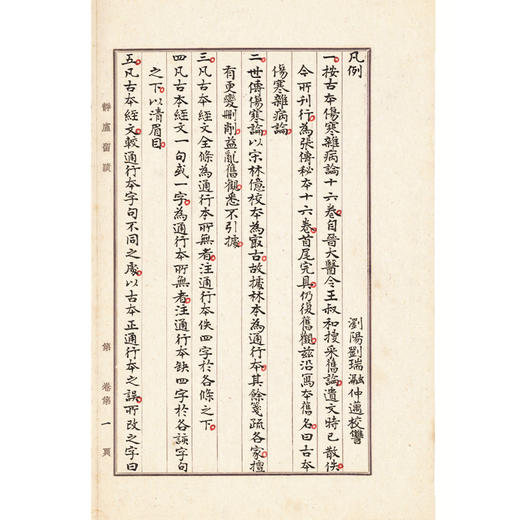 凡例
瀏陽劉瑞瀜仲邁校讐
一按古本傷寒雜病論十六卷自晉大醫令王叔和搜采舊論遺文時已散佚
今所刊行為張傳秘本十六卷首尾完具仍復舊觀茲沿寫本舊名曰古本
傷寒雜病論
二世傳傷寒論以宋林億校本為最古故據林本為通行本其餘箋疏各家擅
有更變刪益亂舊觀悉不引據
三凡古本經文全條為通行本所無者注通行本佚四字於各條之下
四凡古本經文一句或一字為通行本所無者注通行本缺四字於各該字句
之下以清眉目
五凡古本經文較通行本字句不同之處以古本正通行本之誤所改之字曰
靜廬留蹟
第 卷第 一 頁